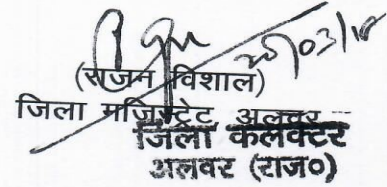 20/03/18
(राजन विशाल)
जिला मजिस्ट्रेट अलवर
जिला कलक्टर
अलवर (राज०)